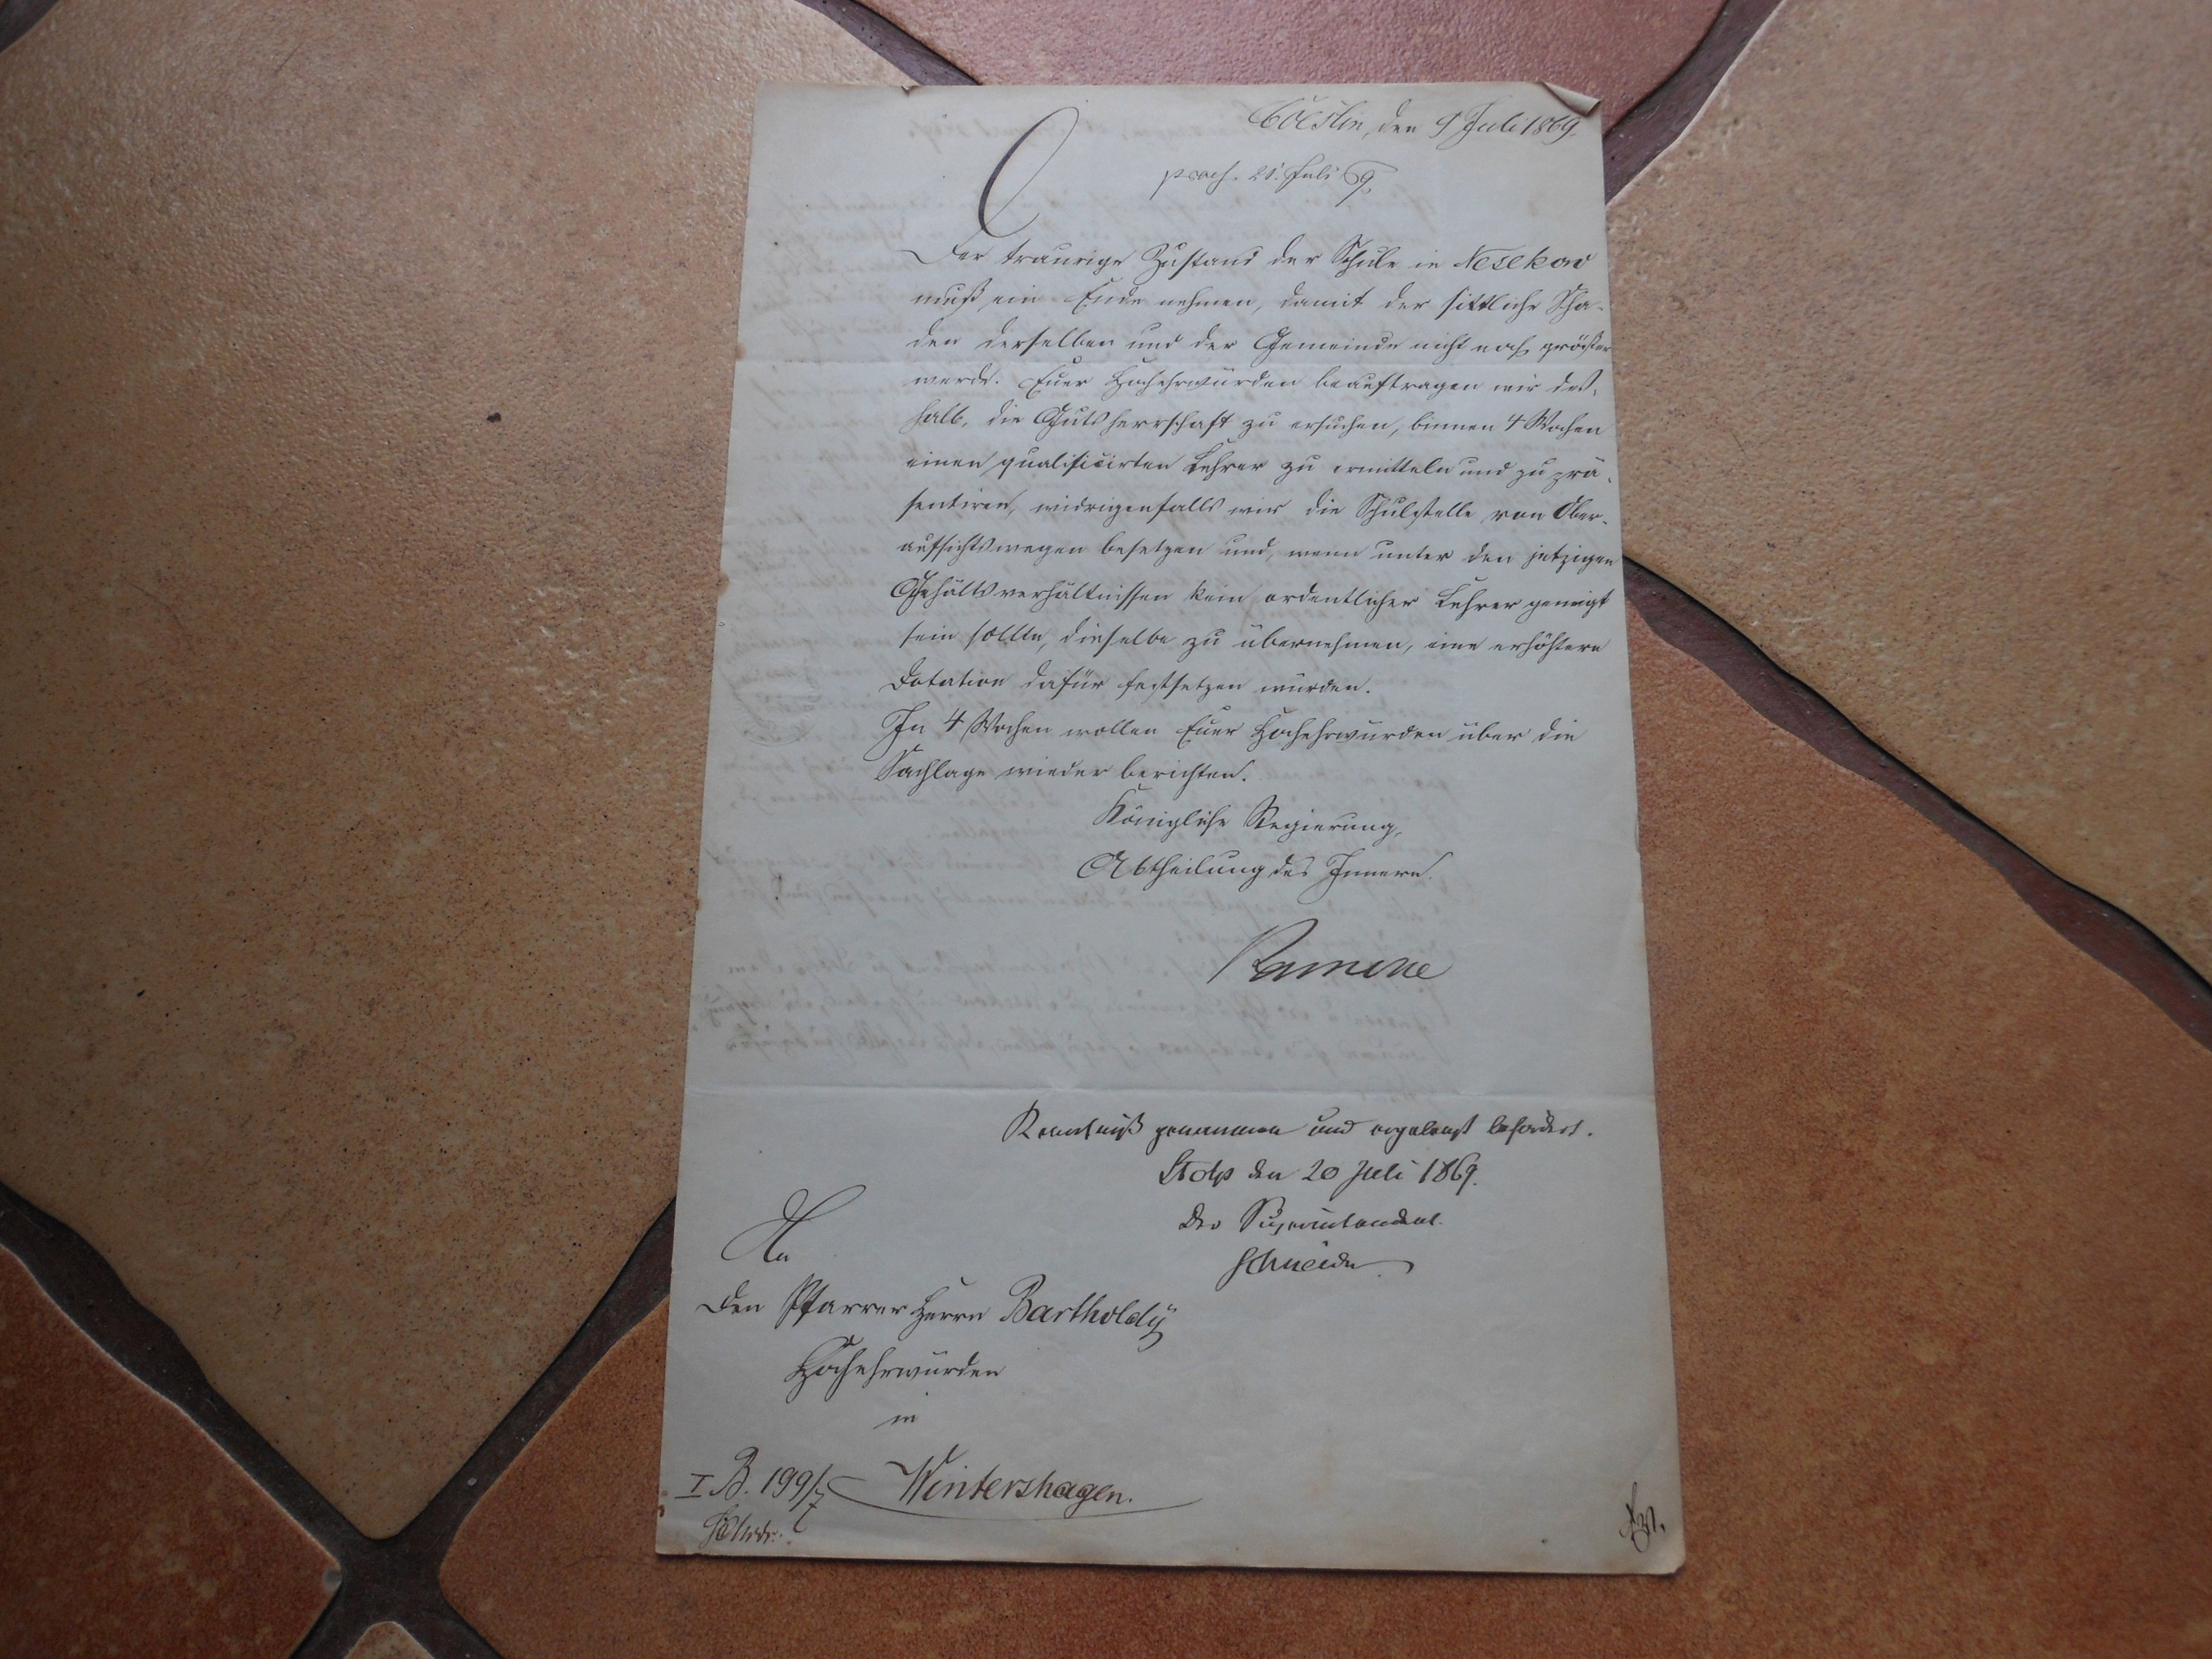 Coeslin, den 9 Juli 1869.
praes. 21. Juli 69.
Der traurige Zustand der Schule in Nesekow
muß ein Ende nehmen, damit der sittliche Scha-
den derselben und der Gemeinde nicht noch größer
werde. Euer Hochehrwürden beauftragen wir deß-
halb, die Gutsherrschaft zu ersuchen, binnen 4 Wochen
einen qualificirten Lehrer zu ermitteln und zu prä-
sentiren, widrigenfalls wir die Schulstelle von Ober-
aufsichtswegen besetzen und, wenn unter den jetzigen
Gehaltsverhältnissen kein ordentlicher Lehrer geneigt
sein sollte, dieselbe zu übernehmen, eine erhöhtere
Dotation dafür festsetzen würden.
In 4 Wochen wollen Euer Hochehrwürden über die
Sachlage wieder berichten.
Königliche Regierung,
Abtheilung des Innern.
Kenntniß genommen und ergebenst befördert.
Stolp den 20 Juli 1869.
Der Superintendent.
Schneider
An
den Pfarrer Herrn Bartholdÿ
Hochehrwürden
in
Wintershagen.
I B. 199/7